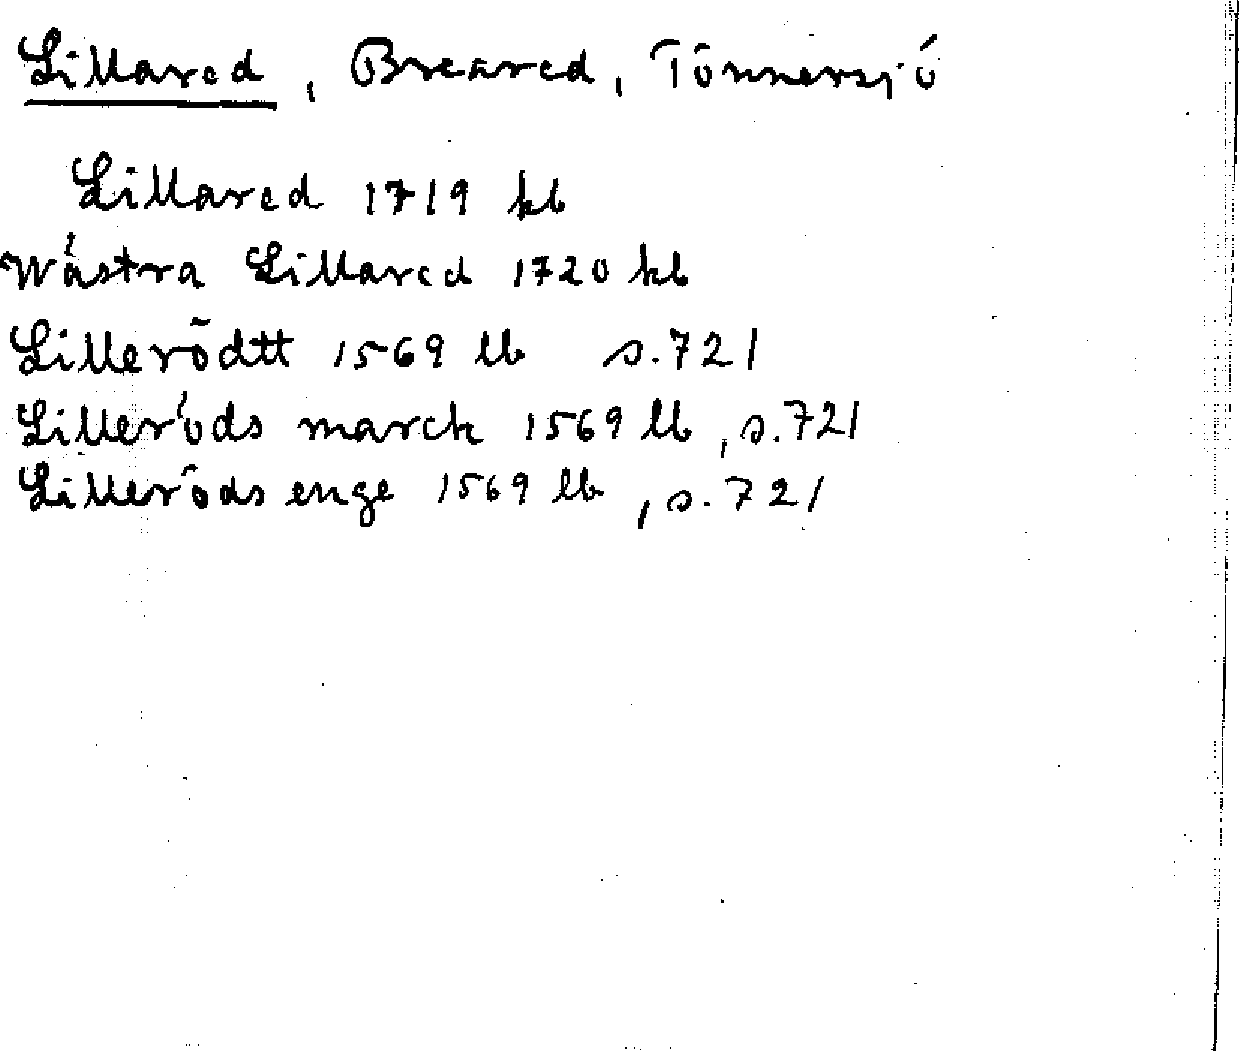 Lillared, Breared, Tönnersjö
Lillared 1719 kb
Wästra Lillared 1720 kb
Lillerödtt 1569 lb s.721
Lilleröds marck 1569 lb, s.721
Lilleröds enge 1569 lb, s.721